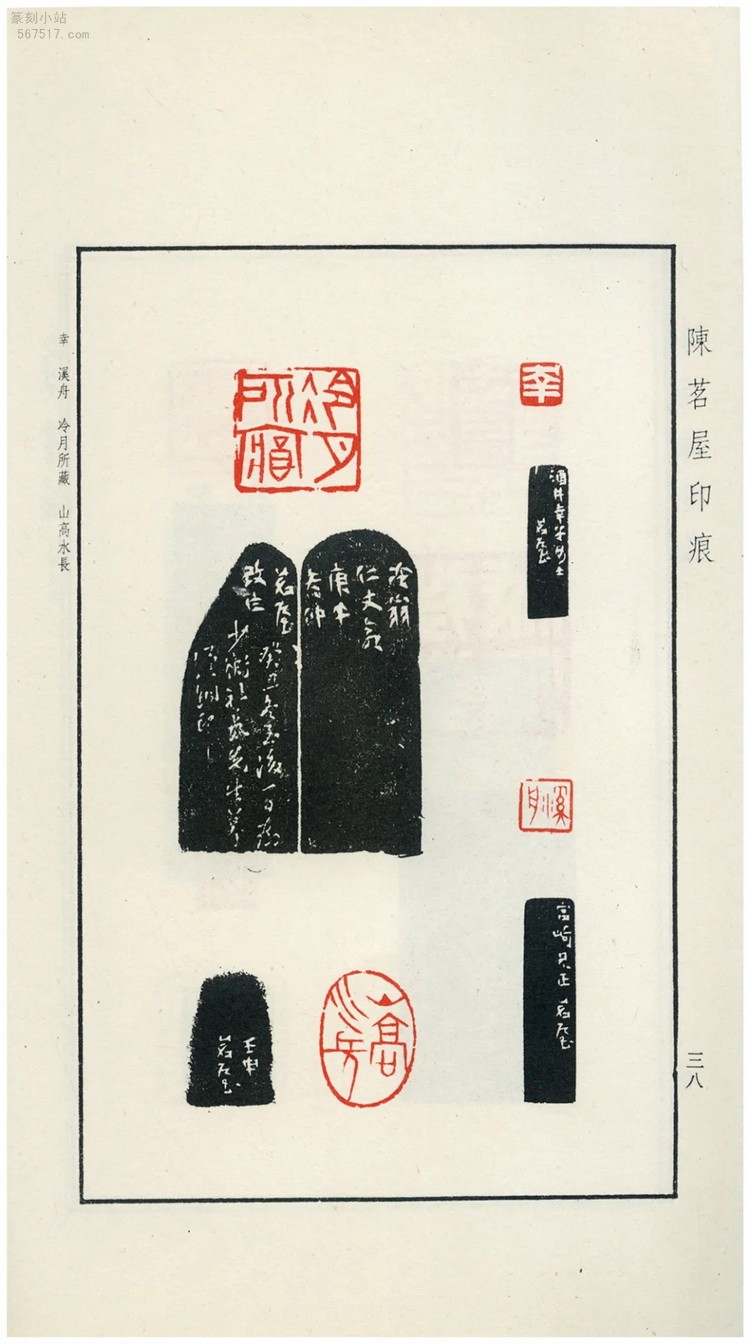 篆刻小站
567517.com
陳茗屋印痕
三八
幸
酒井幸 女士
茗屋
溪舟
高崎兄正 茗屋
冷月所藏
冷翁
仁丈命
庚午
春仲
茗屋
改白
癸丑冬至後一日
山高水長
壬申
茗屋
幸 溪舟 冷月所藏 山高水長